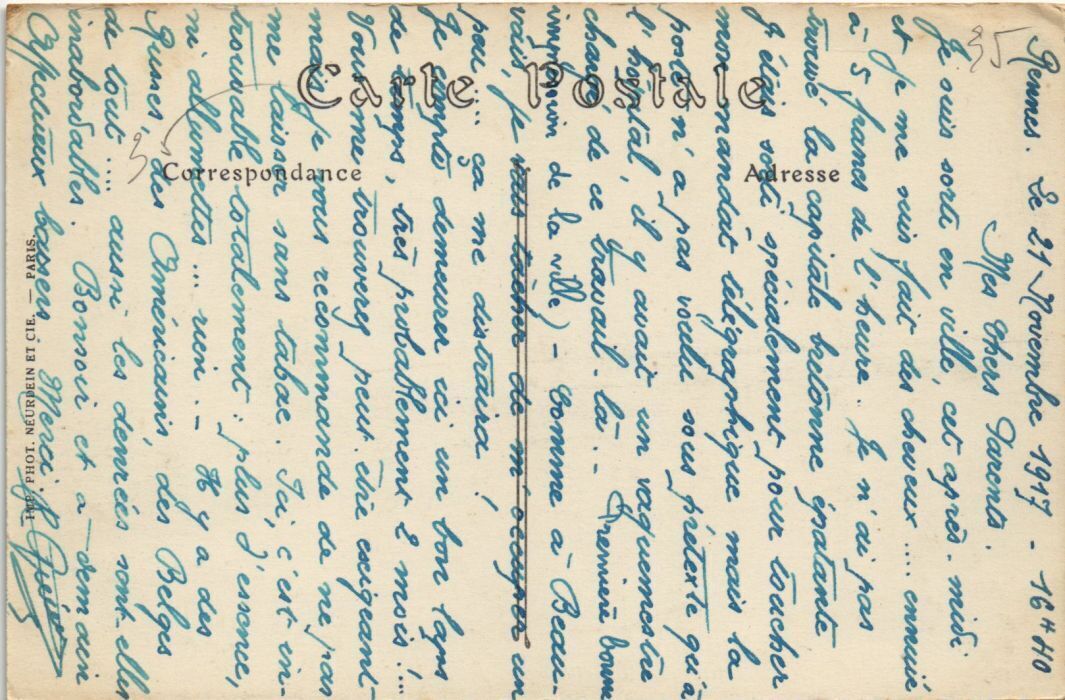 35
Rennes. Le 21 Novembre 1917 - 16H40
Mes Chers Parents.
Je suis sorti en ville, cet après-midi
et je me suis fait des cheveux.... ennuié
à 5 francs de l'heure. Je n'ai pas
trouvé la capitale bretonne épatante
J'étais sorti spécialement pour toucher
mon mandat télégraphique mais la
poste n'a pas voulu sous prétexte qu'à
l'hopital, il y avait un vaguemestre
chargé de ce travail-là. - (Première bonne
impression de la ville) - Comme à Beau-
vais, je vais tâcher de m'occuper un
peu.... ça me distraira!
Je compte demeurer ici un bon laps
de temps, très probablement 2 mois!...
Vous me trouverez peut être exigeant
mais je vous recommande de ne pas
me laisser sans tabac. Ici, c'est in-
trouvable totalement: plus d'essence,
ni allumettes... rien. - Il y a des
Russes, des Américains, des Belges
de tout.... aussi les denrées sont-elles
inabordables. Bonsoir et à demain
Affectueux baisers. Merci.
Carte Postale
3
Correspondance
Adresse
IMP. PHOT. NEURDEIN ET CIE. — PARIS.